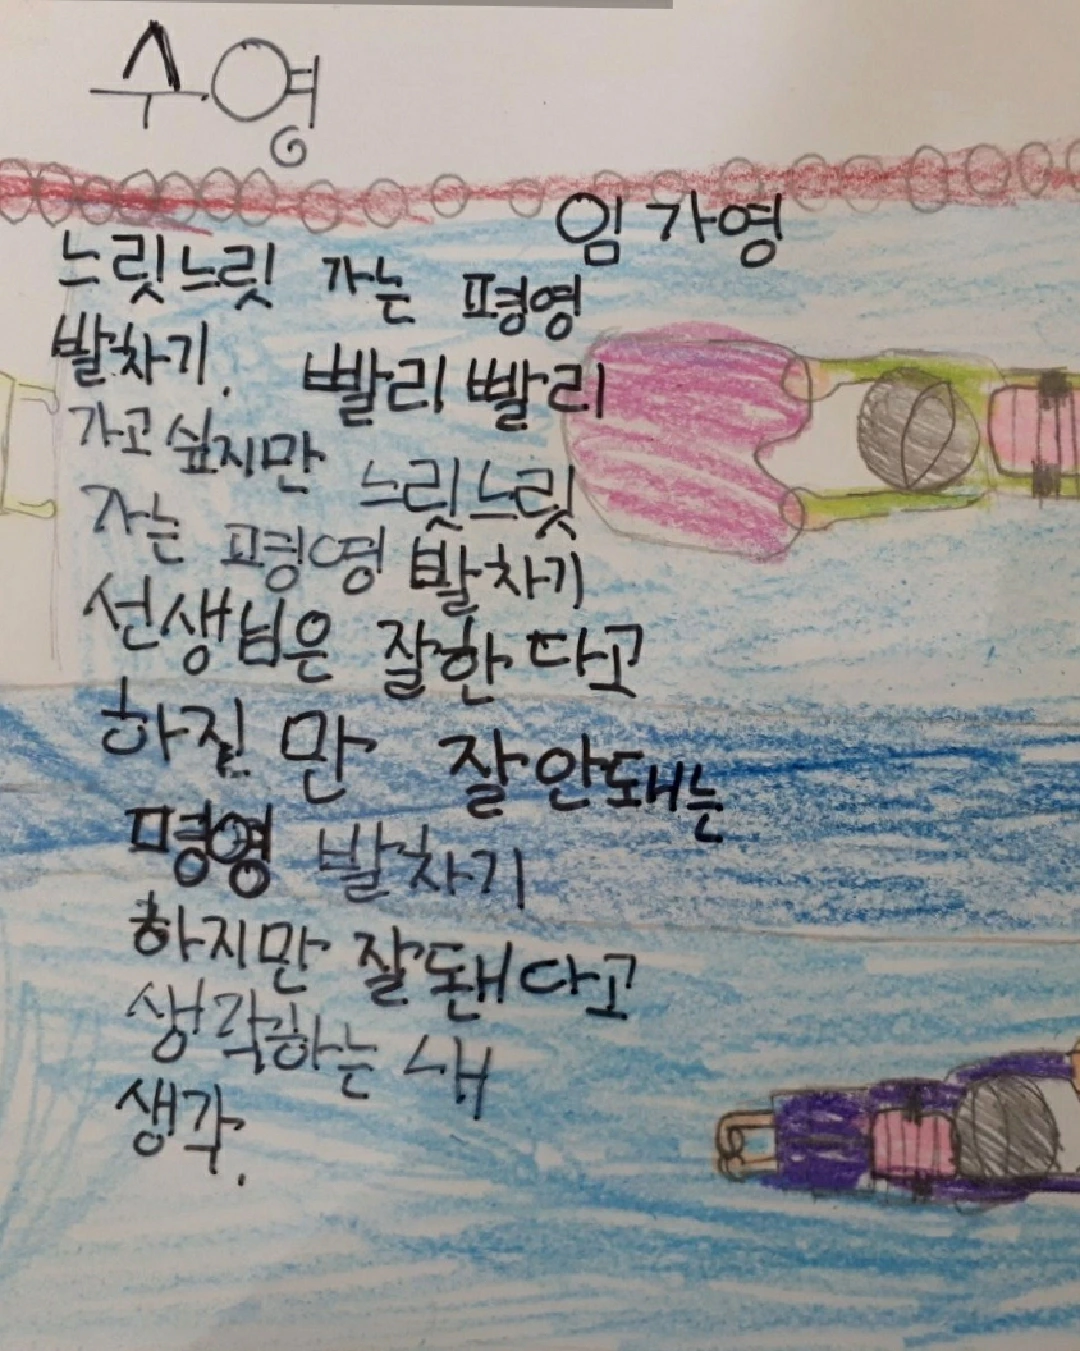 수영
임가영
느릿느릿 가는 평영
발차기. 빨리빨리
가고싶지만 느릿느릿
가는 평영 발차기
선생님은 잘한다고
하짔만 잘안돼는
평영 발차기
하지만 잘됀다고
생각하는 내
생각.